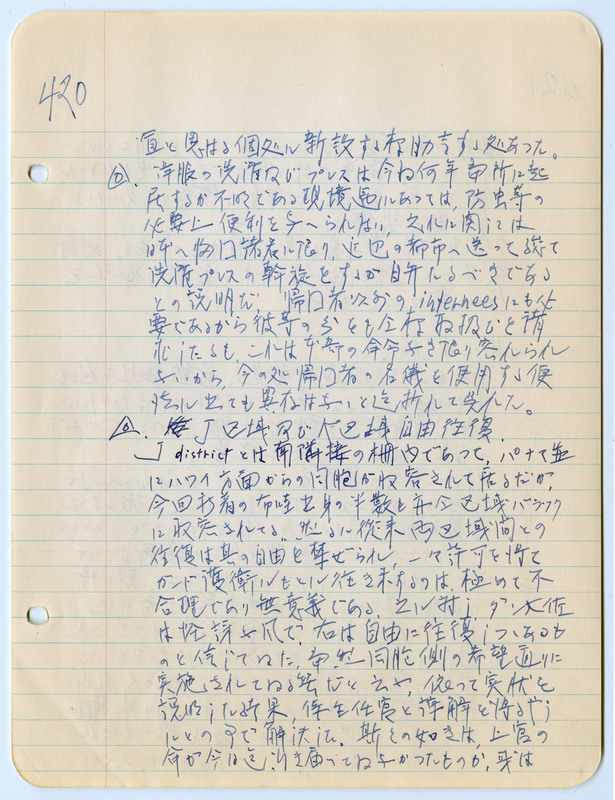 420
宜と思はる個処に新設する様助言する処あつた。
⑤. 洋服の洗濯及びプレスは今ね何年当所に起
居するか不明である現境遇にあつては、防虫等の
必要上便利を与へられない、之れに関しては
日本へ帰口諸君に限り、近辺の都市へ送つて総て
洗濯プレスの斡旋をするが自弁たるべきである
との説明だ 帰口者以外の internees にも必
要であるから彼等の分をも全様取扱ひを講
じたるも、これは本部の命令なき限り容れられ
ないから、今の処帰口者の名儀を使用する便
法に出ても異存はないと迄折れて呉れた。
⑥. J区域及び区域自由往復.
J district とは南隣接の柵内であつて、パナマ並
にハワイ方面からの同胞が収容されて居るだが
今回到着の布哇出身の半数も弁全区域バラック
に収容されてる。然るに従来両区域間との
往復は其の自由を禁ぜられ、一々許可を得て
ガード護衛のもとに往き来するのは、極めて不
合理であり無意義である。之に対し、ダン大佐
は怪訝な風で、右は自由に往復しつゝあるも
のと信じてゐた、当然同胞側の希望通りに
実施されてゐる筈だと云や、依つて実状を
説明した結果、係主任官と諒解を得るやう
にとの事で解決した。斯その如きは、上官の
命が今日迄引き届いてゐなかつたものか、或は